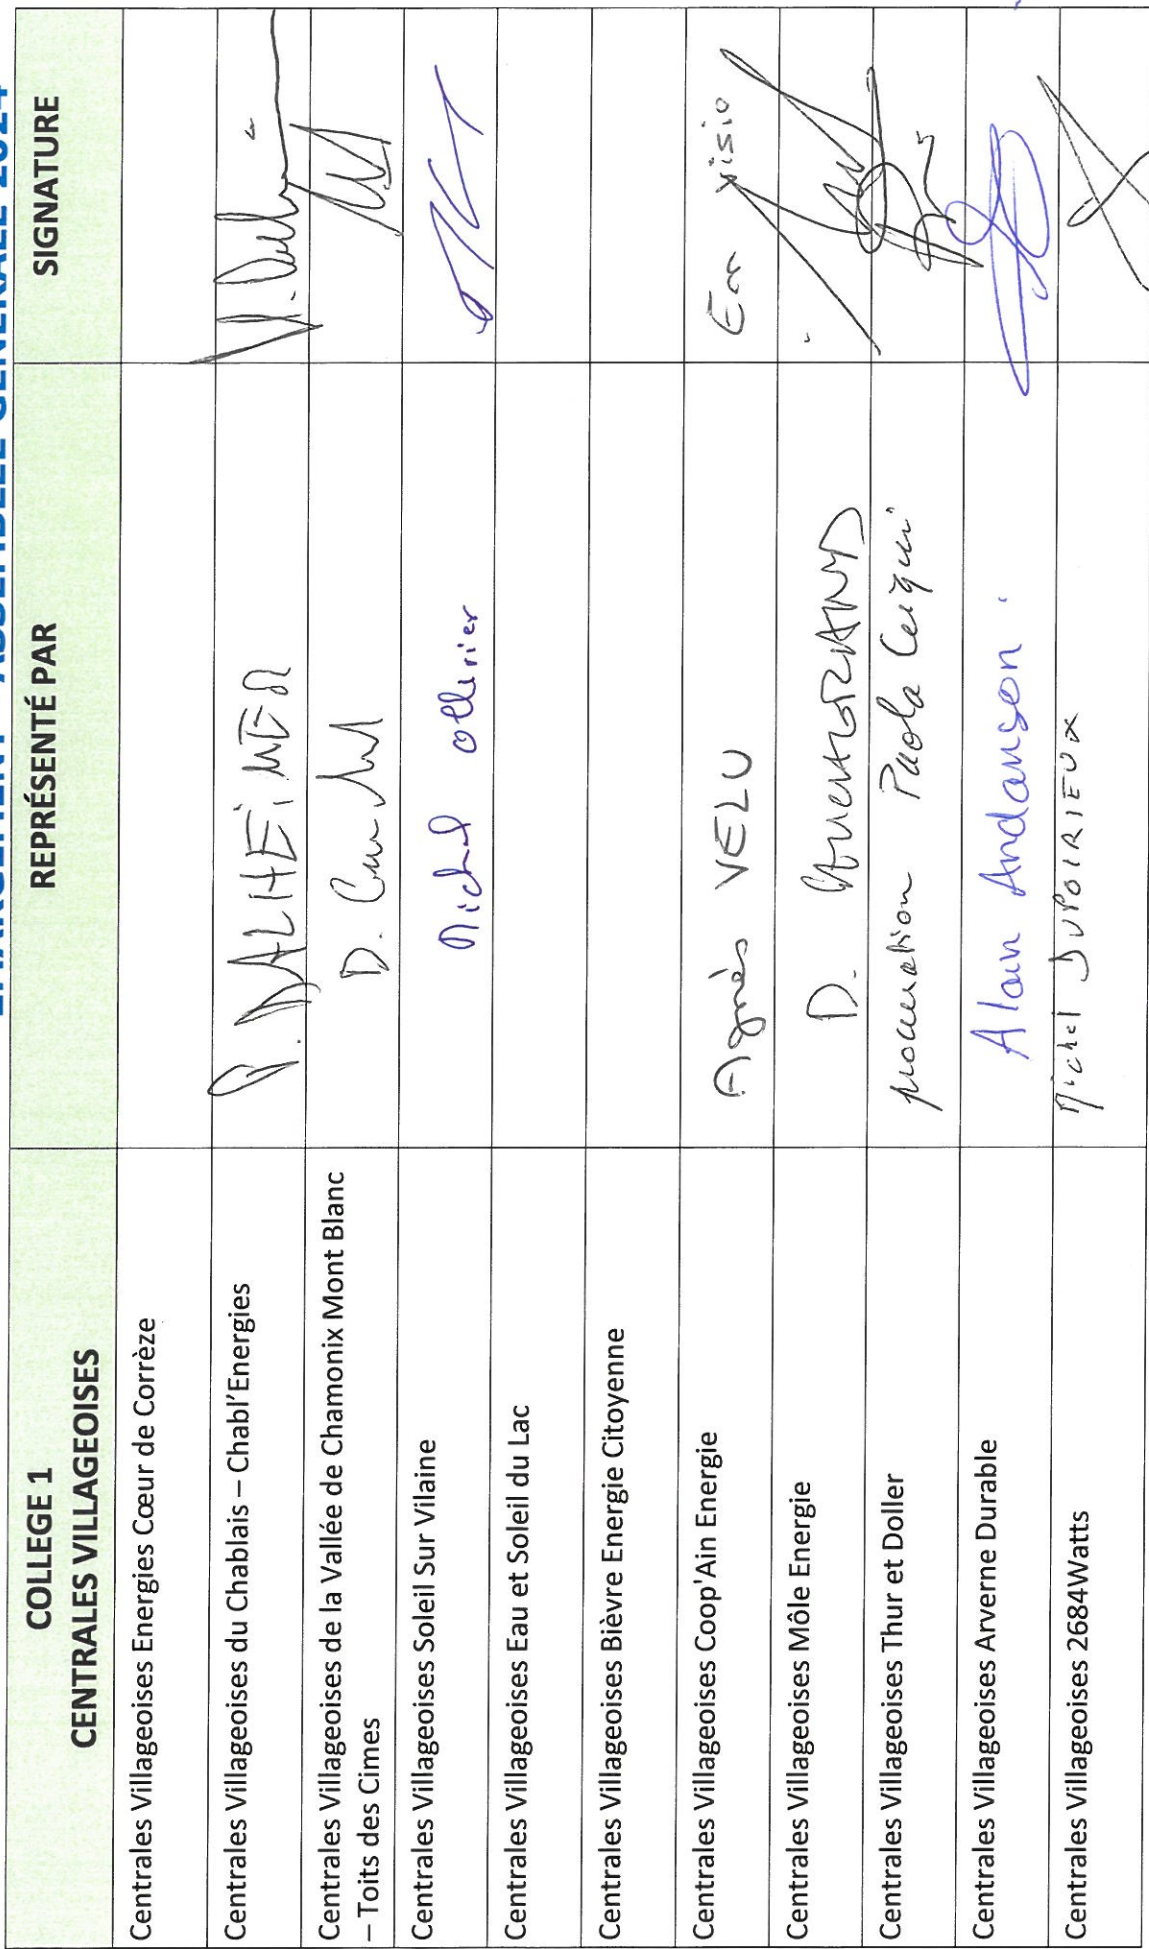 COLLEGE 1
CENTRALES VILLAGEOISES
REPRÉSENTÉ PAR
SIGNATURE
Centrales Villageoises Energies Cœur de Corrèze
Centrales Villageoises du Chablais – Chabl'Energies
DALHEiMER
Centrales Villageoises de la Vallée de Chamonix Mont Blanc
– Toits des Cimes
D.
Centrales Villageoises Soleil Sur Vilaine
Michel ollivier
Centrales Villageoises Eau et Soleil du Lac
Centrales Villageoises Bièvre Energie Citoyenne
Centrales Villageoises Coop'Ain Energie
Agnès VELU
En visio
Centrales Villageoises Môle Energie
D.
Centrales Villageoises Thur et Doller
procuration Paola
Centrales Villageoises Arverne Durable
Alain Andanson.
Centrales Villageoises 2684Watts
Michel DUPOIRIEUX